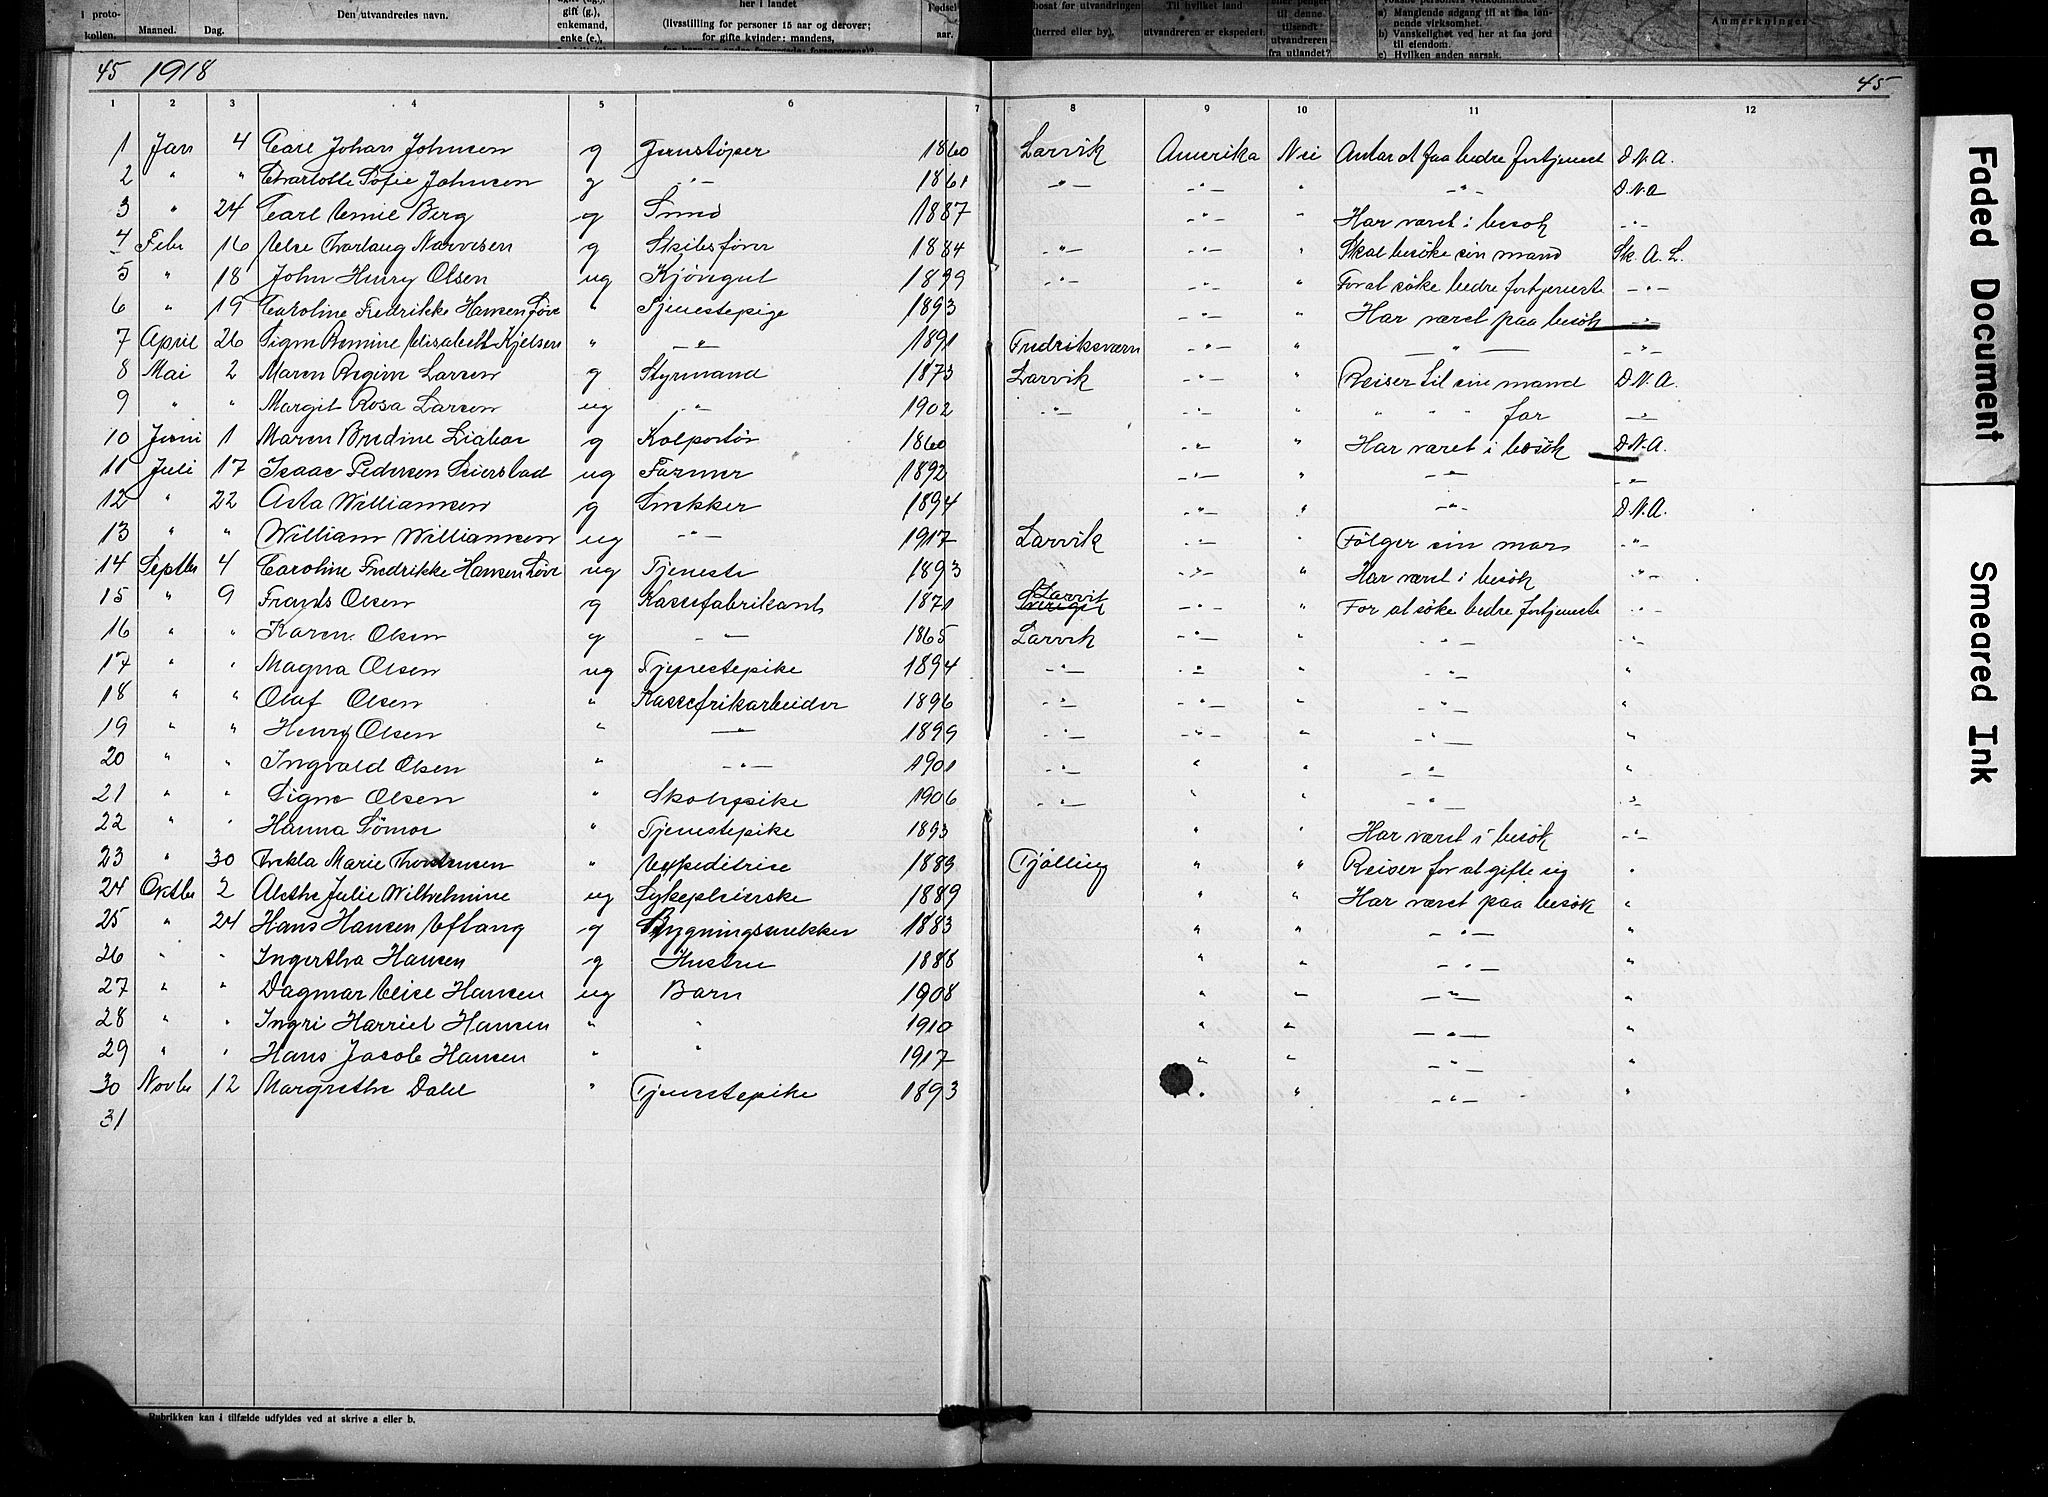 i proto- kollen. Maaned. Dag. Den utvandredes navn. gift (g.), enkemand, enke (e.), her i landet (livsstilling for personer 15 aar og derover; for gifte kvinder: mandens, Fødsel aar. bosat før utvandringen (herred eller by). Til hvilket land utvandreren er ekspedert. til denne tilsendt utvandreren fra utlandet? a) Manglende adgang til at faa lønnende virksomhet. b) Vanskelighet ved her at faa jord til eiendom. c) Hvilken anden aarsak. Anmerkninger
45 1918 45
1 2 3 4 5 6 7 8 9 10 11 12
1 Jan 4 Carl Johan Johnsen g Jernstøper 1860 Larvik Amerika Nei Antar at faa bedre fortjenest D.N.A.
2 " " Charlotte Sofie Johnsen g -"- 1861 -"- -"- " -"- D.N.A
3 " 24 Carl Emil Berg g Smed 1887 -"- " Har været i besøk -"-
4 Febr 16 Else Thorlaug Narvesen g Skibsfører 1884 -"- -"- " Skal besøke sin mand Sk. A. L.
5 " 18 John Henry Olsen ug Kjöngut 1899 -"- -"- " For at söke bedre fortjeneste -"-
6 " 19 Caroline Fredrikke Hansen Löve " Tjenestepige 1893 -"- " Har været paa besök -"-
7 April 26 Signe Bomine Elisabeth Kjelsen " -"- 1891 Fredriksværn -"- " -"- -"-
8 Mai 2 Maren Regine Larsen g Styrmand 1873 Larvik -"- " Reiser til sin mand D.N.A.
9 " " Margit Rosa Larsen ug -"- 1902 -"- -"- " " " " far -"-
10 Juni 1 Maren Bredine Liabøe g Kolportör 1860 -"- " Har været i besök D.N.A.
11 Juli 17 Isaac Pedersen Seierstad ug Farmer 1892 -"- " -"- -"-
12 " 22 Asta Williamsen g Snekker 1894 -"- " -"- D.N.A.
13 " " William Williamsen ug -"- 1917 Larvik -"- " Fölger sin mor -"-
14 Septbr 4 Caroline Fredrikke Hansen Löve ug Tjeneste 1893 -"- " Har været i besök -"-
15 " 9 Frands Olsen g Kassefabrikant 1871 Larvik Sverige -"- " For at söke bedre fortjeneste -"-
16 " " Karen Olsen g -"- 1865 Larvik -"- " -"- -"-
17 " " Magna Olsen ug Tjenestepike 1894 -"- -"- " -"- "
18 " " Olaf Olsen " Kassefrikarbeider 1896 -"- -"- " -"- "
19 " " Henry Olsen " -"- 1899 -"- -"- " -"- "
20 " " Ingvald Olsen " -"- 1901 -"- " " -"- "
21 " " Signe Olsen " Skolepike 1906 -"- " " -"- -"-
22 " " Hanna Sömoe " Tjenestepike 1893 " " Har været i besök -"-
23 " 30 Thekla Marie Thorstensen " Expeditrice 1883 Tjölling " " Reiser for at gifte sig "
24 Oktbr 2 Alethe Julie Wilhelmine ug Sykepleierske 1889 " " Har været paa besök "
25 " 24 Hans Hansen Eftang g Bygningssnekker 1883 " " -"- "
26 " " Ingertha Hansen g Hustru 1888 " " -"- "
27 " " Dagmar Elise Hansen ug Barn 1908 " " -"- "
28 " " Ingri Harriet Hansen " " 1910 " " -"- "
29 " " Hans Jacob Hansen " " 1917 " " -"- "
30 Novbr 12 Margrethe Dahl " Tjenestepike 1893 " " -"- "
31
Rubrikken kan i tilfælde utfyldes ved at skrive a eller b.
Faded Document
Smeared Ink